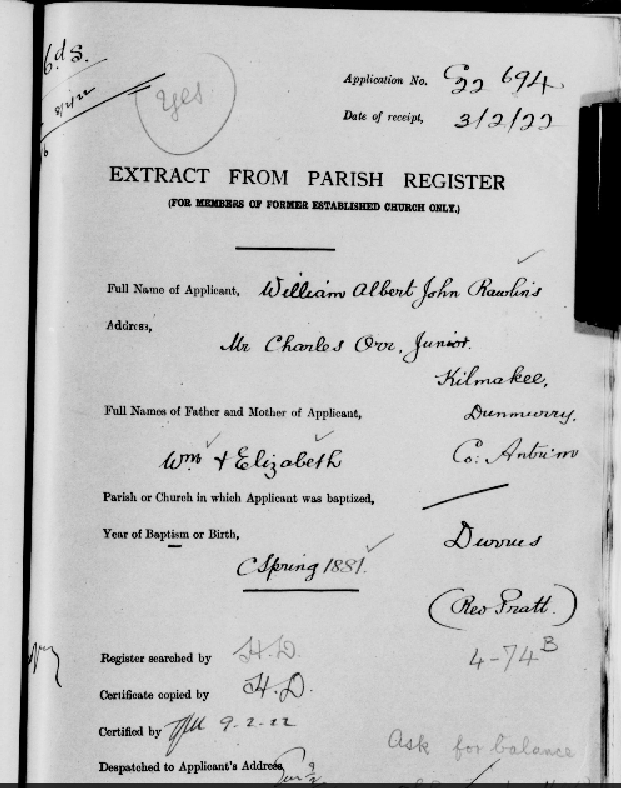 6.d s.
Yes
Application No. C22 694
Date of receipt, 3/2/22
EXTRACT FROM PARISH REGISTER
(FOR MEMBERS OF FORMER ESTABLISHED CHURCH ONLY.)
Full Name of Applicant, William Albert John Rawlins
Address,
Mr Charles Orr, Junior.
Kilmakee,
Full Names of Father and Mother of Applicant, Dunmurry.
Wm & Elizabeth Co: Antrim
Parish or Church in which Applicant was baptized,
Year of Baptism or Birth, Durrus
Spring 1881.
(Rev Pratt.)
Register searched by H.D. 4-74B
Certificate copied by H.D.
Certified by 9-2-22
Ask for balance
Despatched to Applicant's Address,